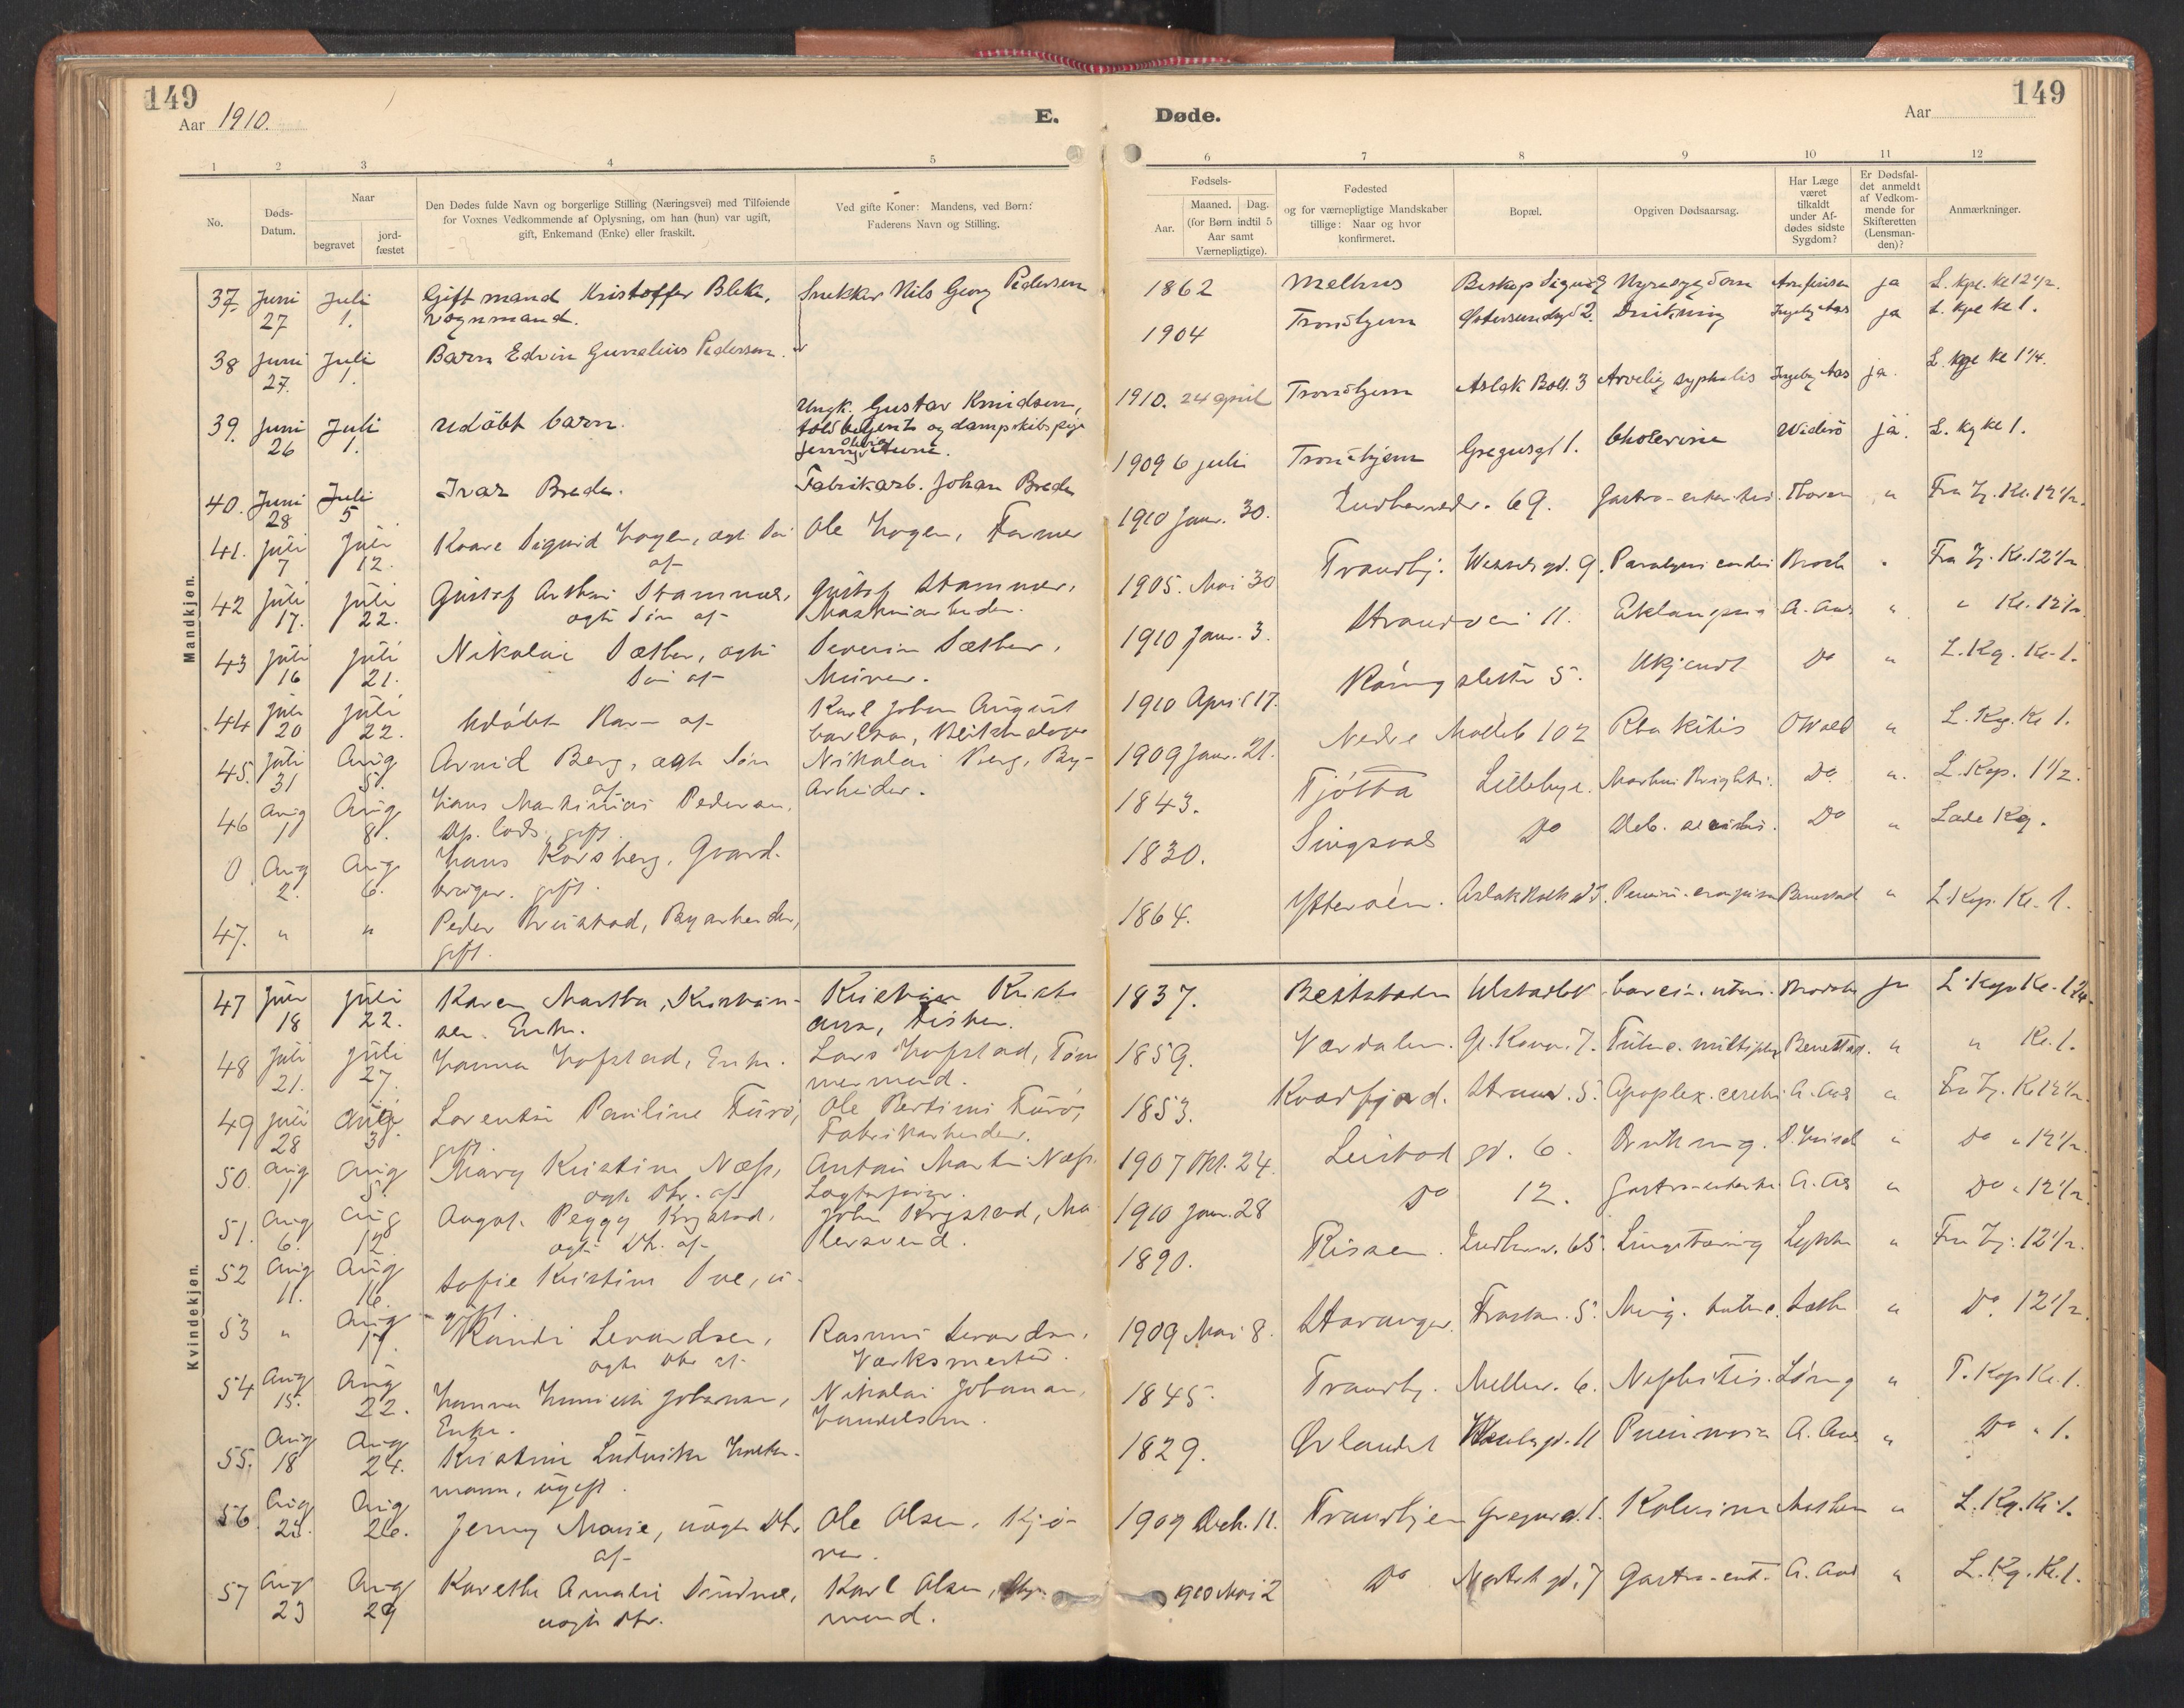 149
Aar 1910.
E.
Døde.
Aar
149
1 2 3 4 5 6 7 8 9 10 11 12
No.
Døds-
Datum.
Naar
begravet
jord-
fæstet
Den Dødes fulde Navn og borgerlige Stilling (Næringsvei) med Tilføiende
for Voxnes Vedkommende af Oplysning, om han (hun) var ugift,
gift, Enkemand (Enke) eller fraskilt.
Ved gifte Koner: Mandens, ved Børn:
Faderens Navn og Stilling.
Fødsels-
Aar.
Maaned. Dag.
(for Børn indtil 5
Aar samt
Værnepligtige).
Fødested
og for værnepligtige Mandskaber
tillige: Naar og hvor
konfirmeret.
Bopæl.
Opgiven Dødsaarsag.
Har Læge
været
tilkaldt
under Af-
dødes sidste
Sygdom?
Er Dødsfal-
det anmeldt
af Vedkom-
mende for
Skifteretten
(Lensman-
den)?
Anmærkninger.
Mandkjøn.
37. Juni 27 Juli 1. Gift mand Kristoffer Blekn,
vognmand.
1862 Melhus Nyresygdom ja L. kpl. kl 12 1/2.
38 Juni 27. Juli 1. Barn Edvin Gunelius Pedersen.
Snekker Nils Georg Pedersen
1904 Trondhjem Drukning Ingeby Aas ja L. kpl kl 1.
39. Juni 26 Juli 1. udöbt barn.
Ungk. Gustav Knudsen,
toldbetjent og dampskibspige
1910. 24 april Trondhjem Aslak Bolt. 3 Arvelig syphilis Ingeby Aas ja. L. kpl kl 1 1/4.
40. Juni 28 Juli 5 Ivar Breda.
Fabrikarb. Johan Breda
1909 6 juli Trondhjem Gregusgt 1. Cholerine Widerö ja. L. kg kl 1.
41. Juli 7 Juli 12. Kaare Sigurd Hagen, ægte Søn
af
Ole Hagen, Farmer
1910 Janr. 30. Indherredv. 69. Gastro-enteritis. Thoresen " Fra Hj. Kl. 12 1/2.
42 Juli 17. Juli 22. Gustof Arthur Stammer,
ægte Søn af
Gustof Stammer,
Maskinarbeider.
1905. Mai 30 Trondhj. Wesselsgd. 9. Paralysis cordis Broch " Fra Hj. Kl. 12 1/2
43 Juli 16 Juli 21. Nikolai Sæther, ægte
Søn af
Severin Sæther,
Murer.
1910 Janr. 3. Strandvei 11. Eklampsia A. Aas " " Kl. 12 1/2
44 Juli 20 Juli 22. Udöbt Barn af
Karl Johan August
Carlson,
1910 April 17. Röning sletta 5. Ukjendt Do " L. Kg. Kl. 1.
45. Juli 31 Aug 5. Arvid Berg, ægte Søn
af
Nikolai Berg, By-
Arbeider.
1909 Janr. 21. Nedre Mølleb 102 Rhakitis OWald " L. Kg. Kl 1.
46 Aug 1 Aug 8. Hans Martinius Pedersen,
Dp. Lods, gift.
1843. Tjøtta Lillebye. Morbus Brightii. Do. " L. Kap. 1 1/2.
0 Aug 2. Aug 6. Hans Korsberg, Gaard-
bruger. gift.
1830. Singsaas Do Deb. senilis. Do " Lade Kg.
47. " " Peder Breistad, Byarbeider,
gift.
1864. Ytterøen. Benestad " L. Kap. Kl. 1.
Kvindekjøn.
47 Juli 18 Juli 22. Karen Martha, Kristian-
sen. Enke.
Kristian Kristi-
ansen, Fisker.
1837. Beitstaden Ulstadløk. Carcin. uteri. ja L. Kap. Kl.
48 Juli 21. Juli 27. Hanna Hofstad, Enke.
Lars Hofstad, Tøm-
mermand.
1859. Værdalen. Gl. Kanav. 7. Tuberc. multiplex Benestad. " " Kl. 1.
49 Juli 28 Aug 3. Laurentze Pauline Furö,
gift.
Ole Bertini Furö,
Fabrikarbeider.
1853. Kvædfjord. Strandv. 5. Apoplex. cerebri A. Aas " Fra Hj. Kl 12 1/2.
50. Aug 1 Aug 5. Mary Kristine Næss,
ægte Dtr. af
Anton Martin Næss.
Lægterfører.
1907 Okt. 24. Leistad gd. 6. Drukning. " Do " 12 1/2.
51. Aug 6. Aug 12 Peggy Krystad,
ægte Dtr. af
John Krystad, Ma-
lersvend.
1910 Janr. 28 Do 12. Gastro-enterite A. Aas " Do " 12 1/2.
52 Aug 11. Aug 16. Sofie Kristine Soe, u-
gift.
1890. Rissen. Indherr. 65. Lungetæring Lykke " Fra Hj. 12 1/2.
53 " Aug 17. Randi Levardsen,
ægte Dtr af
Rasmus Levardsen,
Værksmester.
1909 Mai 8. Stavanger. Frosten. 5. Ming. tuberc. Sæth " Do. 12 1/2.
54 Aug 15. Aug 22. Hanna Johansen,
Enke.
Nikolai Johansen,
Handelsm.
1845. Trondhj. Mellemv. 6. Nephitis. Løvig " T. Kap Kl. 1.
55. Aug 18 Aug 24. Kristine Ludvikke
mann, ugift.
1829. Ørlandet Pneumonia A. Aas " Do " 1.
56. Aug 23. Aug 26. Jenny Marie, uægte Dtr
af
Ole Olsen, Kjø-
rer.
1909 Decb. 11. Trondhjem Gregusgd. 1. Kolerine " L. Kg. Kl. 1.
57 Aug 23 Aug 29 Karethe Amalie
uægte Dtr.
Karl Olsen,
mand.
1910 Mai 2 Do gd. 7 Gastro-ent. A. Aas " L. Kg. Kl. 1.